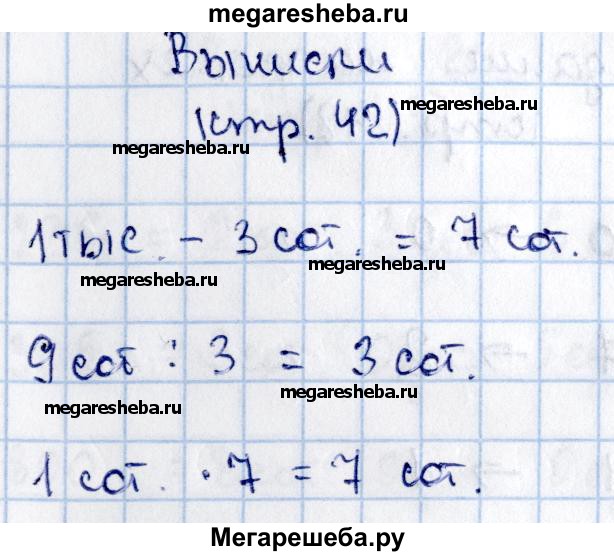 megaresheba.ru
Вычисли
(стр. 42)
megaresheba.ru
megaresheba.ru
1 тыс. - 3 сот. = 7 сот.
megaresheba.ru
megaresheba.ru
9 сот : 3 = 3 сот.
megaresheba.ru
megaresheba.ru
1 сот. · 7 = 7 сот.
Мегарешеба.ру